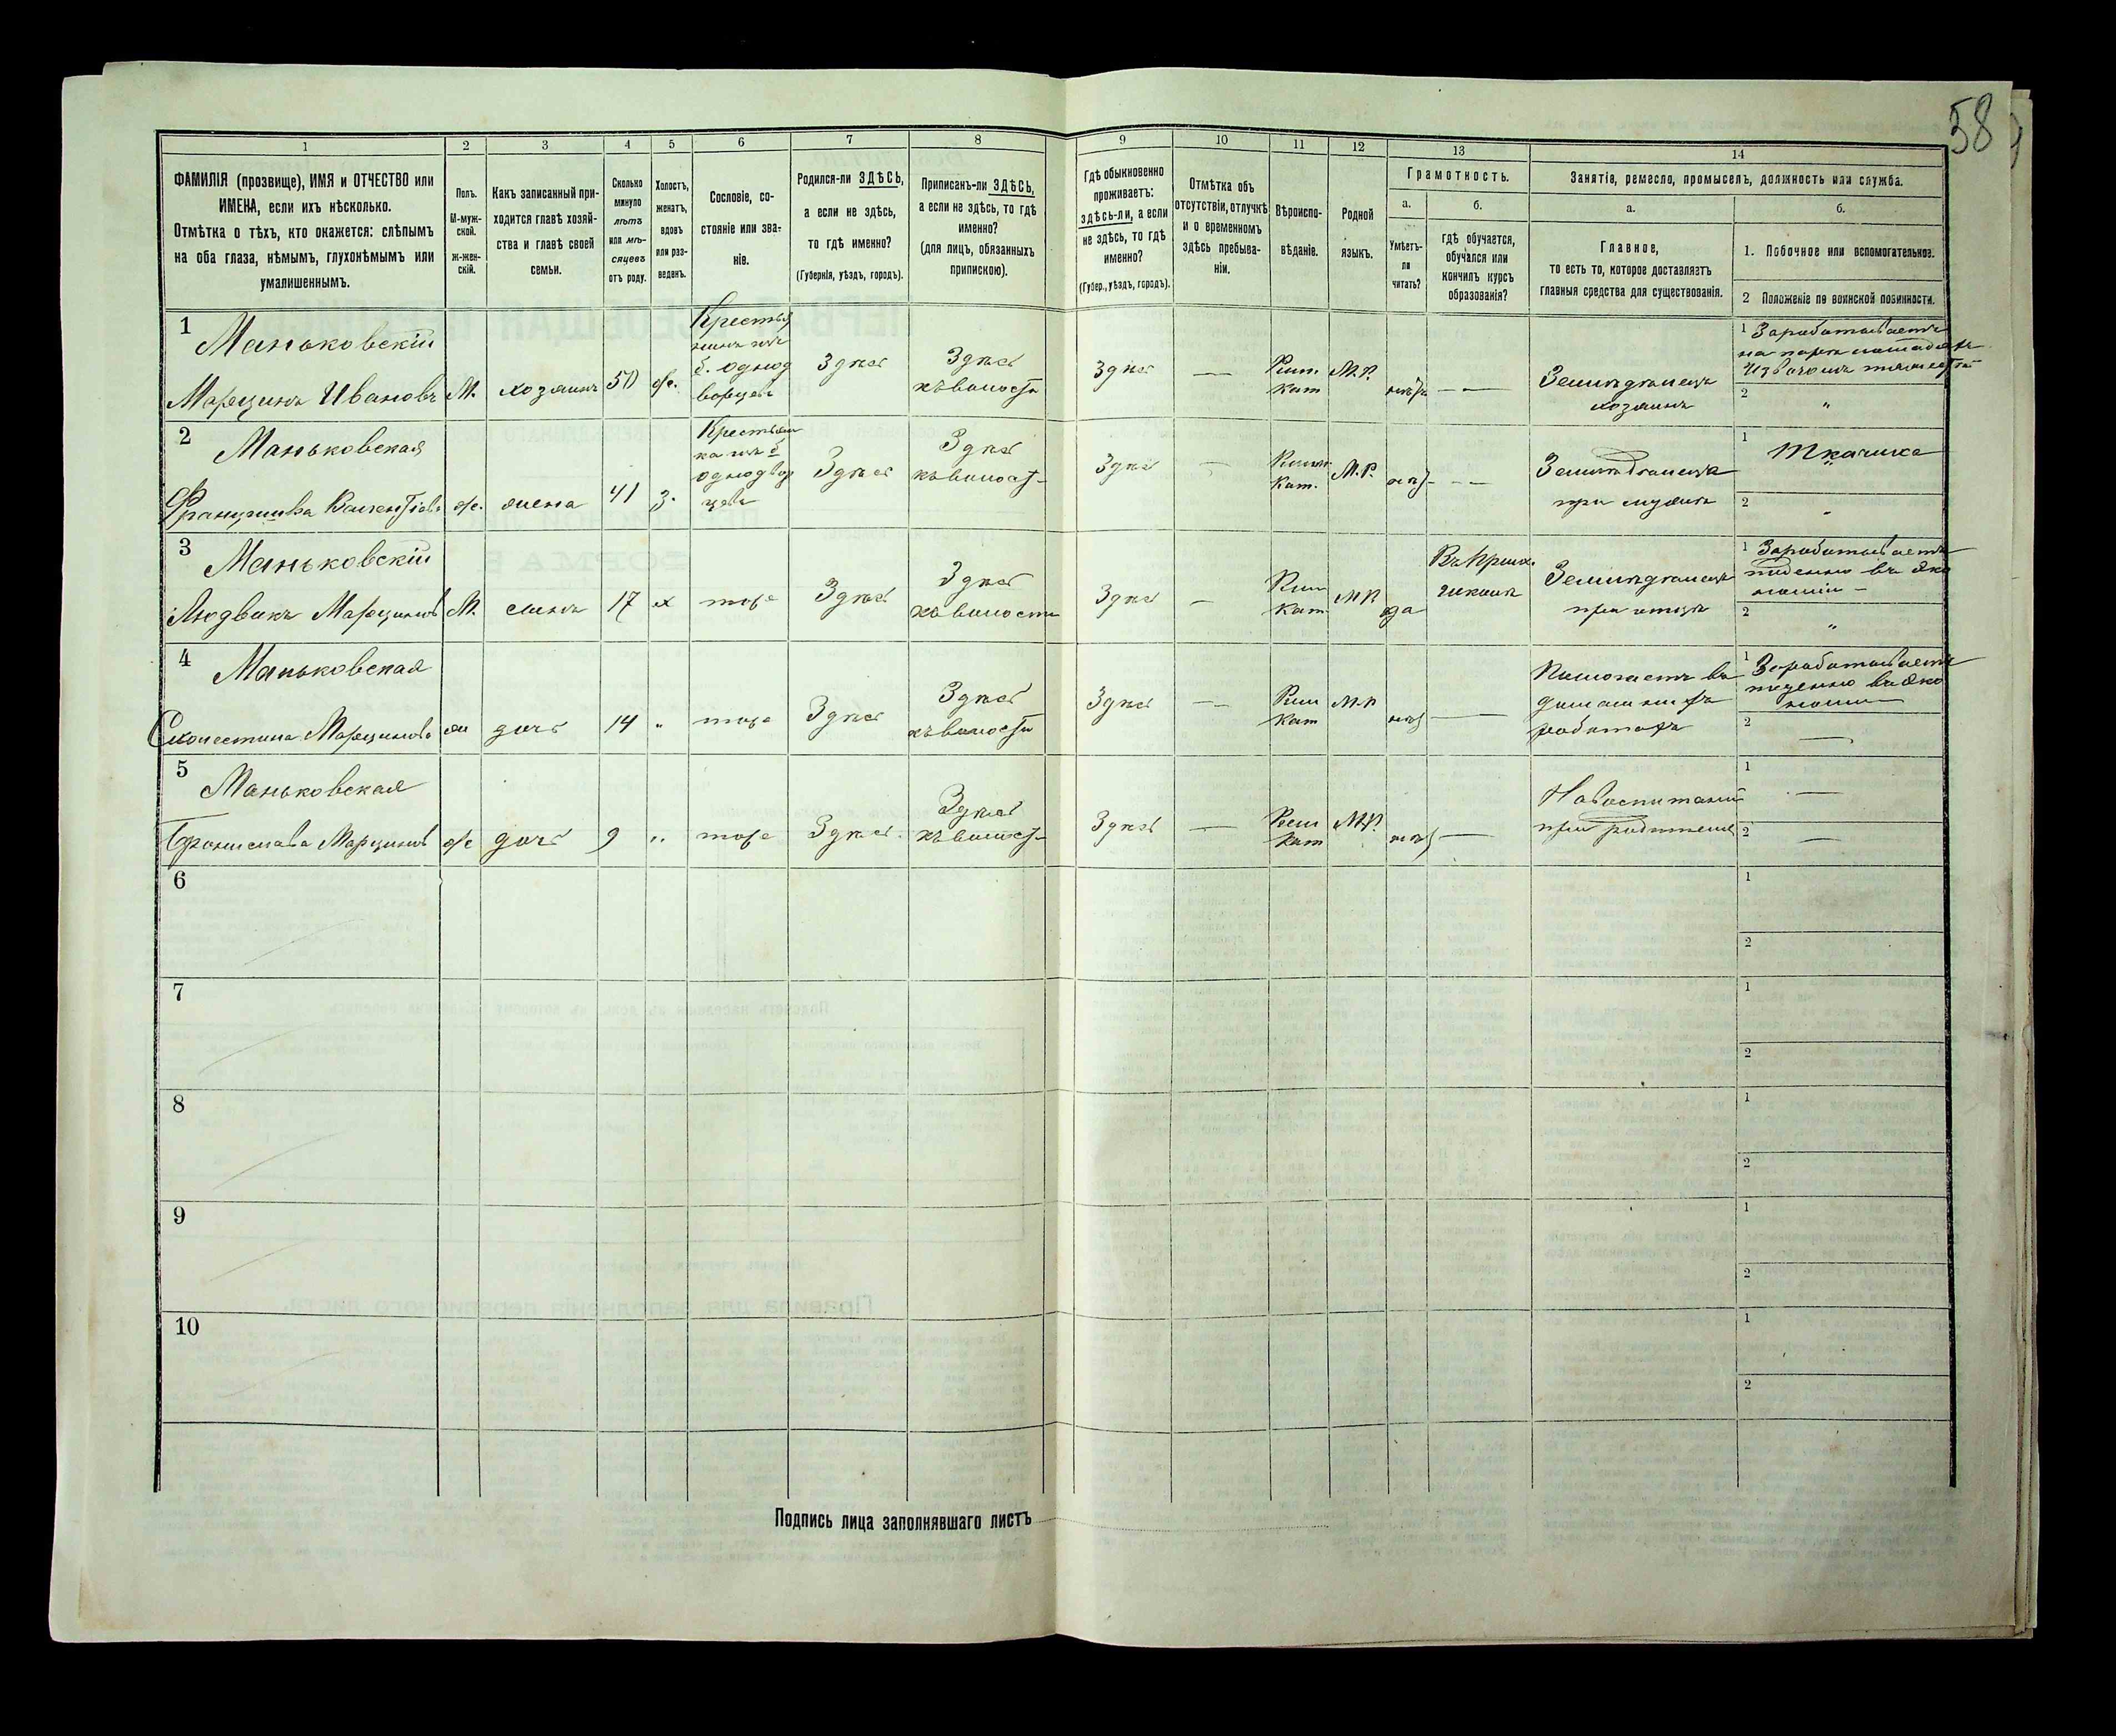 58
1 2 3 4 5 6 7 8 9 10 11 12 13 14
ФАМИЛІЯ (прозвище), ИМЯ и ОТЧЕСТВО или
ИМЕНА, если ихъ нѣсколько.
Отмѣтка о тѣхъ, кто окажется: слѣпымъ
на оба глаза, нѣмымъ, глухонѣмымъ или
умалишеннымъ.
Полъ.
М-муж-
ской.
Ж-жен-
скій.
Какъ записанный при-
ходится главѣ хозяй-
ства и главѣ своей
семьи.
Сколько
минуло
лѣтъ
или мѣ-
сяцевъ
отъ роду.
Холостъ,
женатъ,
вдовъ
или раз-
веденъ.
Сословіе, со-
стояніе или зва-
ніе.
Родился-ли ЗДѢСЬ,
а если не здѣсь,
то гдѣ именно?
(Губернія, уѣздъ, городъ).
Приписанъ-ли ЗДѢСЬ,
а если не здѣсь, то гдѣ
именно?
(для лицъ, обязанныхъ
припискою).
Гдѣ обыкновенно
проживаетъ:
здѣсь-ли, а если
не здѣсь, то гдѣ
именно?
(Губер., уѣздъ, городъ).
Отмѣтка объ
отсутствіи, отлучкѣ
и о временномъ
здѣсь пребыва-
ніи.
Вѣроиспо-
вѣданіе.
Родной
языкъ.
Грамотность.
а.
Умѣетъ-
ли
читать?
б.
гдѣ обучается,
обучался или
кончилъ курсъ
образованія?
Занятіе, ремесло, промыселъ, должность или служба.
а.
Главное,
то есть то, которое доставляетъ
главныя средства для существованія.
б.
1. Побочное или вспомогательное.
2 Положеніе по воинской повинности.
1 Маньковскій
Марцинъ Ивановъ
М.
хозяинъ
50
ж.
Крестья
нинъ изъ
б. однод
ворцевъ
Здѣсь
Здѣсь
къ волости
Здѣсь
—
Рим.
кат
М.Р.
нѣтъ
— —
Земледѣлецъ
хозяинъ
1 Зарабатываетъ
на парѣ лошадей
2 "
2 Маньковская
Францишка
ж.
жена
41
З.
Крестьян
ка изъ б
однодвор
цевъ
Здѣсь
Здѣсь
къ волост
Здѣсь
—
Римс
Кат.
М.Р.
нѣт
— —
при мужѣ
1 Ткачиха
2
3 Маньковскій
Людвикъ Марцинов
М.
сынъ
17
х
тоже
Здѣсь
Здѣсь
къ волости
Здѣсь
—
Рим
Кат
М.Р.
да
Въ Прих.
школѣ
Земледѣлецъ
при отцѣ
1 Зарабатываетъ
поденно въ эко
номіи —
2 "
4 Маньковская
Марцинова
ж
дочь
14
"
тоже
Здѣсь
Здѣсь
къ волости
Здѣсь
—
Рим
Кат
М.Р
нѣт
—
Помогаетъ въ
домашнихъ
работахъ
1 Зарабатываетъ
поденно въ эко
номіи
2 —
5 Маньковская
Брониславa Марцинов
ж
дочь
9
"
тоже
Здѣсь
Здѣсь
къ волост
Здѣсь
—
Рим
Кат
М.Р.
нѣт
—
На воспитаніи
при родителяхъ
1 —
2 —
6
1
2
7
1
2
8
1
2
9
1
2
10
1
2
Подпись лица заполнявшаго листъ